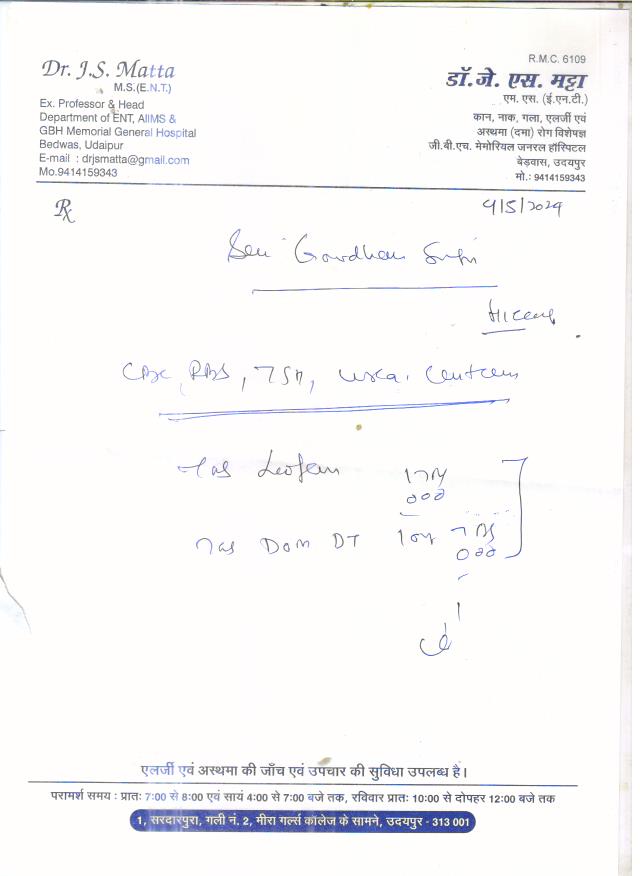 Dr. J.S. Matta
M.S.(E.N.T.)
Ex. Professor & Head
Department of ENT, AIIMS &
GBH Memorial General Hospital
Bedwas, Udaipur
E-mail : drjsmatta@gmail.com
Mo.9414159343
R.M.C. 6109
डॉ. जे. एस. मट्टा
एम. एस. (ई.एन.टी.)
कान, नाक, गला, एलर्जी एवं
अस्थमा (दमा) रोग विशेषज्ञ
जी.बी.एच. मेमोरियल जनरल हॉस्पिटल
बेड़वास, उदयपुर
मो.: 9414159343
Rx
9/5/2024
CBC, RBS, TSH, urea,
Tab
Tab DOM DT
000
एलर्जी एवं अस्थमा की जाँच एवं उपचार की सुविधा उपलब्ध है।
परामर्श समय : प्रातः 7:00 से 8:00 एवं सायं 4:00 से 7:00 बजे तक, रविवार प्रातः 10:00 से दोपहर 12:00 बजे तक
1, सरदारपुरा, गली नं. 2, मीरा गर्ल्स कॉलेज के सामने, उदयपुर - 313 001